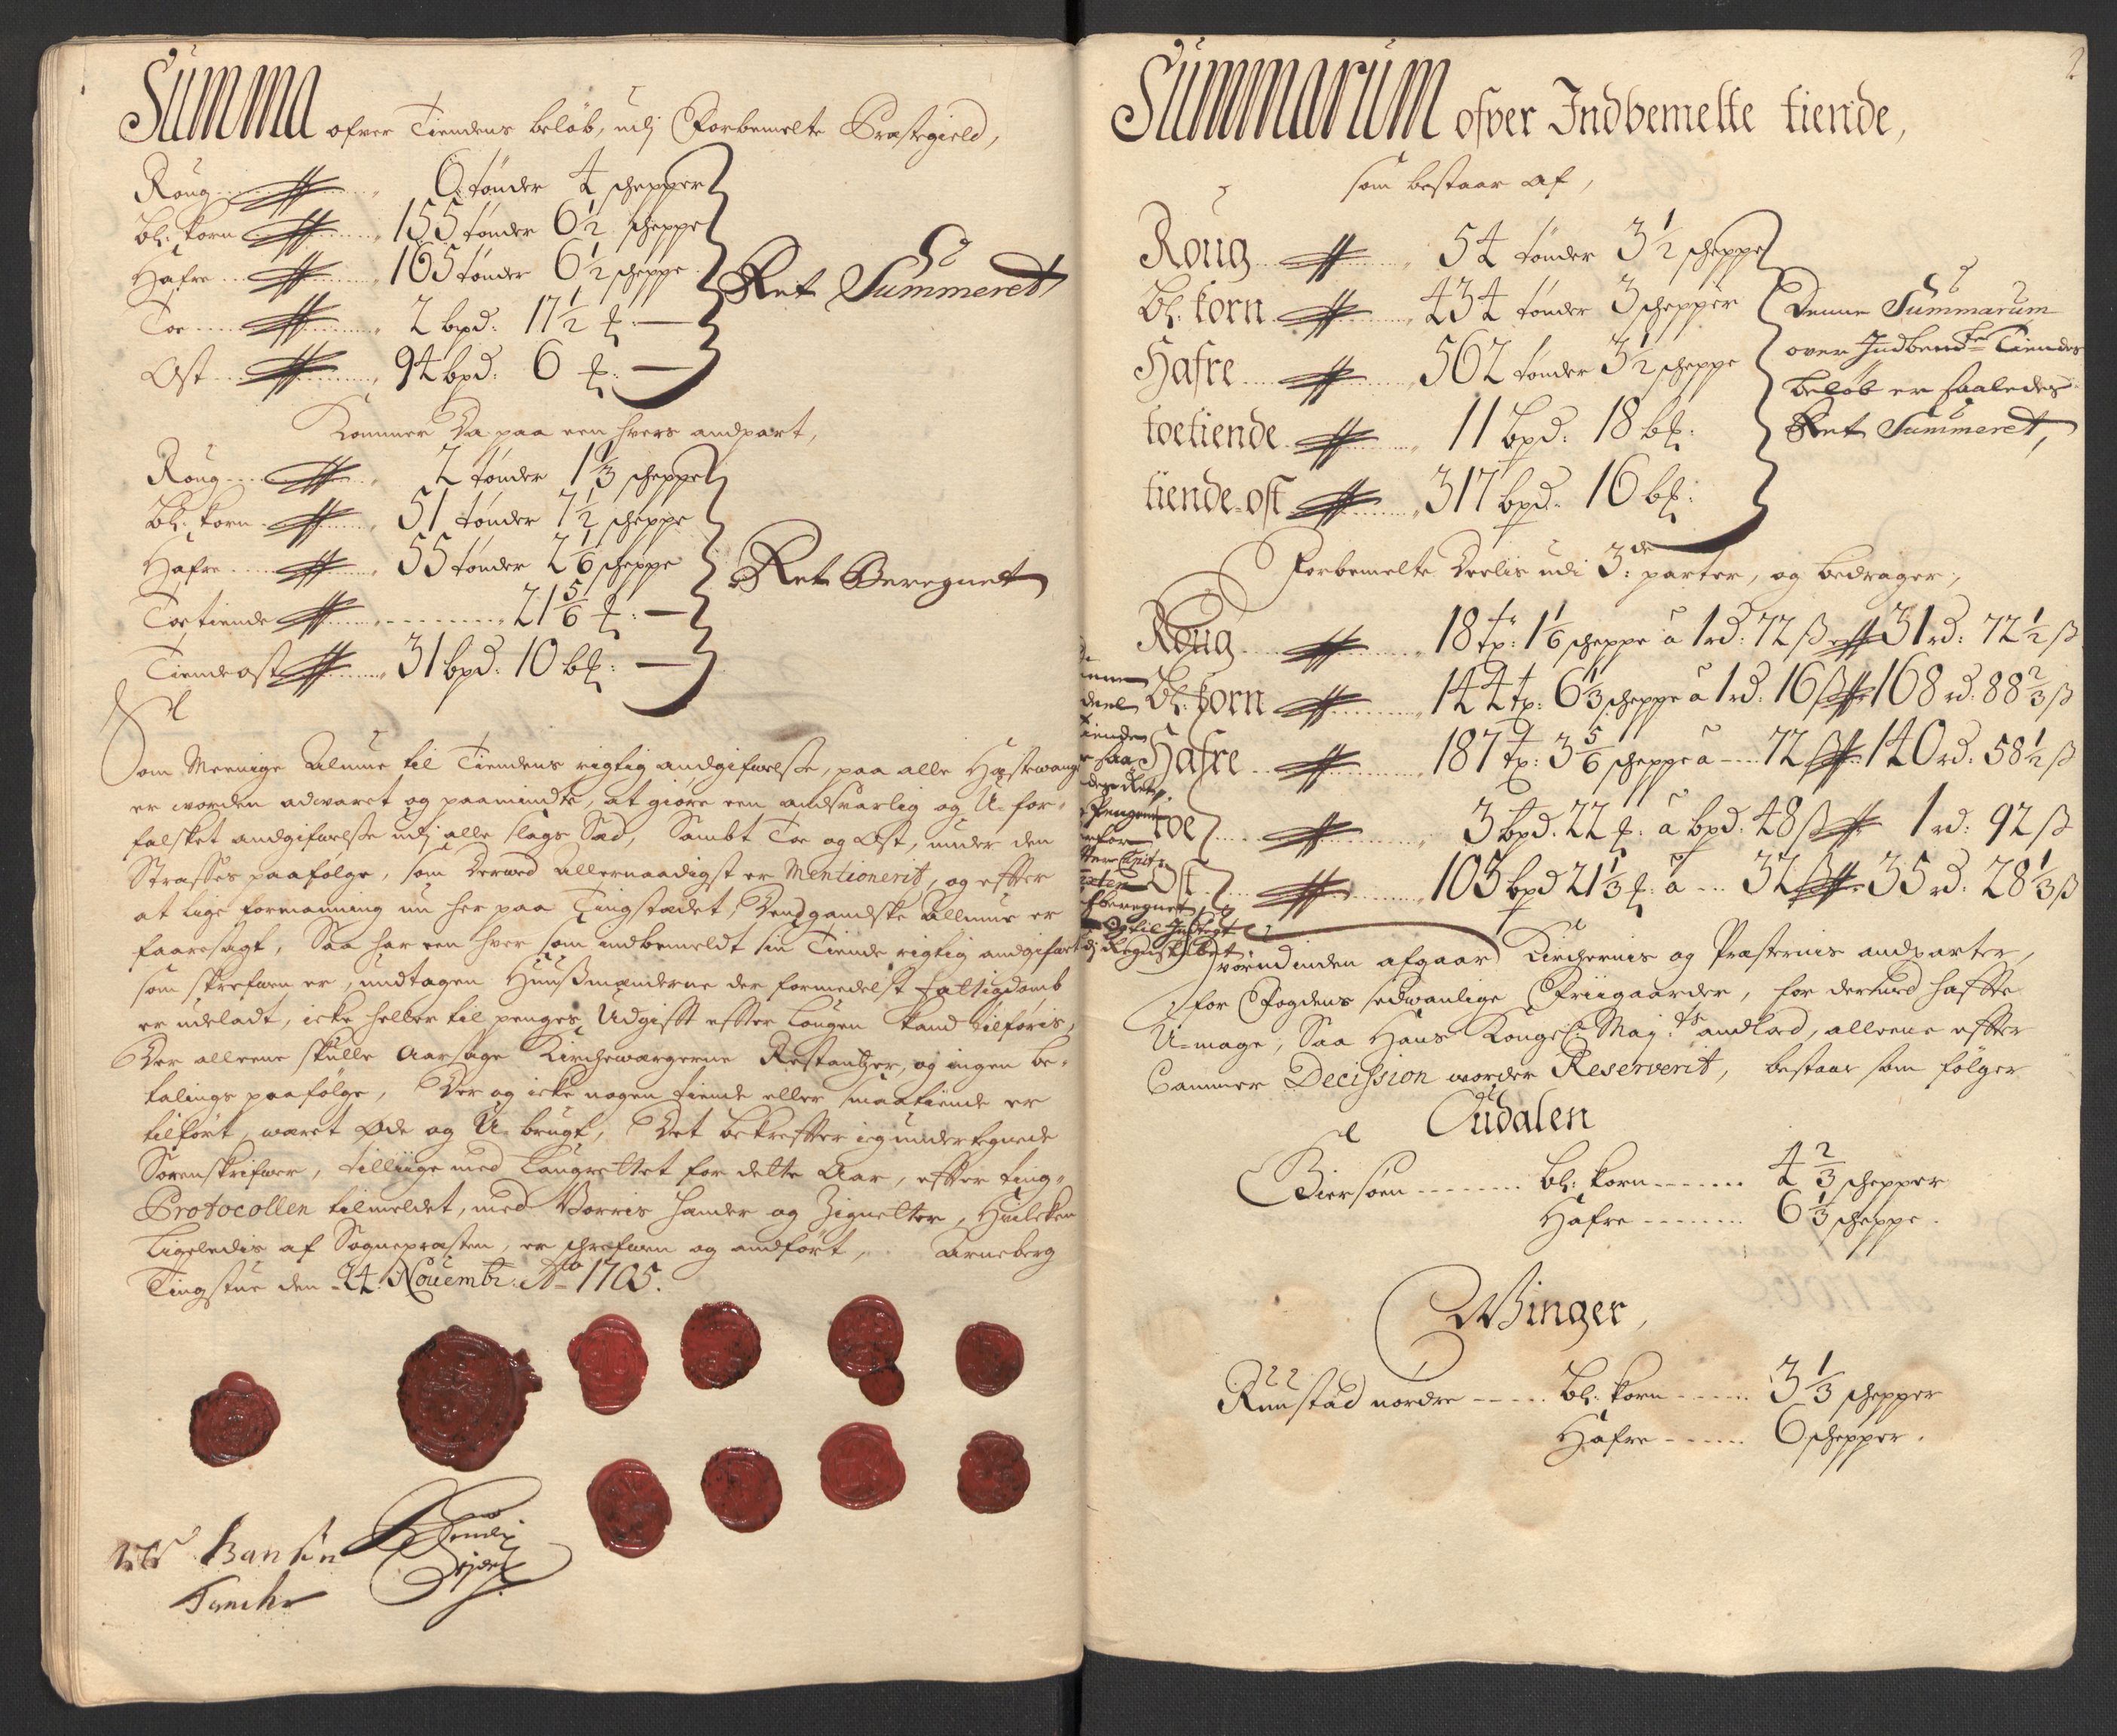 Summa ofver Tiendens beløb, udj Forbemelte Præstegield,
Roug 6 tønder 4 schepper
Bl: korn 155 tønder 6 1/2 scheppe
Hafre 165 tønder 6 1/2 scheppe
Toe 2 bpd: 17 1/2 ℔:
Ost 94 bpd: 6 ℔:
Ret Summeret
Kommer Da paa een hvers andpart,
Roug 2 tønder 1 1/3 scheppe
Bl: korn 51 tønder 7 1/2 scheppe
Hafre 55 tønder 2 1/6 scheppe
Toetiende 21 5/6 ℔:
Tiendeost 31 bpd: 10 b℔:
Ret Beregnet
Som Meenige Almue til Tiendens rigtig andgifvelsse, paa alle Høstewang
er worden adwaret og paamindte, at giøre een andsvarlig og U-for-
falsket andgifvelsse udj alle slags Sæd, Sambt Toe og Ost, under den
Straffes paafølge, som Derved allernaadigst er Mentionerit, og effter
at lige formanning nu her paa Tingstædet, Dend gandske Allmue er
faaresagt, Saa har een hver som indbemeldt sin Tiende rigtig andgifvet
som skrefven er, undtagen Huusmænderne der formedelst fattigdomb
er udeladt, icke heller til penges Udgifft effter Lougen kand tilføris,
Der alleene skulle Aarsage Kirchewærgerne Restantzer, og ingen be-
talings paafølge, Der og icke nogen tiende eller smaatiende er
tilført, været Øde og U-brugt, Det bekreffter ieg underteegnede
Sorenskrifver, tilliige med Laugrettet for dette Aar, effter ting-
Protocollen tilmeldet, med Vorris hænder og Zignetter, Hvilcken
Ligeledis af Sognepræsten, er skrefven og andført, Arneberg
Tingstue den 24 Novembr: Ao 1705.
Summarum ofver Indbemelte tiende,
som bestaar af,
Roug 54 tønder 3 1/2 scheppe
Bl: korn 434 tønder 3 schepper
Hafre 562 tønder 3 1/2 scheppe
toetiende 11 bpd: 18 b℔:
tiende-ost 317 bpd: 16 b℔:
Denne Summarum
over Indbemte Tiendes
beløb er saaledes
Ret Summeret,
Forbemelte Deelis udi 3de parter, og bedrager,
Roug 18 tr: 1 1/6 scheppe à 1 rd: 72 ß 31 rd: 72 1/2 ß
Bl: korn 144 tr: 6 1/3 scheppe à 1 rd: 16 ß 168 rd: 88 2/3 ß
Hafre 187 tr: 3 5/6 scheppe à 72 ß 140 rd: 58 1/2 ß
toe 3 bpd. 22 ℔: à bpd: 48 ß 1 rd: 92 ß
Ost 105 bpd 21 1/3 ℔: à 32 ß 35 rd: 28 1/3 ß
Hvorudinden afgaar Kirchernis og Præsternis andparter,
for Fogdens sedwanlige Friigaarder, for dermed haffte
U-mage, Saa Hans Kongel: Maj:ts andlæd, alleene effter
Cammer Decission worder Reserverit, bestaar som følger
Oudalen
Biersøen bl: korn 4 2/3 schepper
Hafre 6 1/3 scheppe.
Winger,
Ruustad nordre bl: korn 3 1/3 schepper
Hafre 6 schepper.